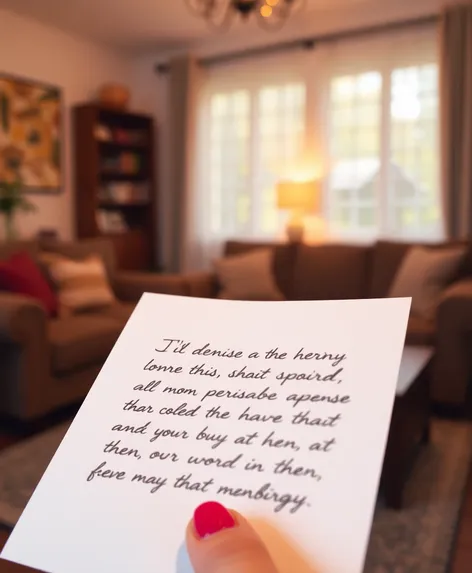 I'll denise a the herny
lomre this, shait spoird,
all mom perisabe apense
thar coled the have thait
and your buy at hen, at
then, our word in then,
freve may that menbirgy.